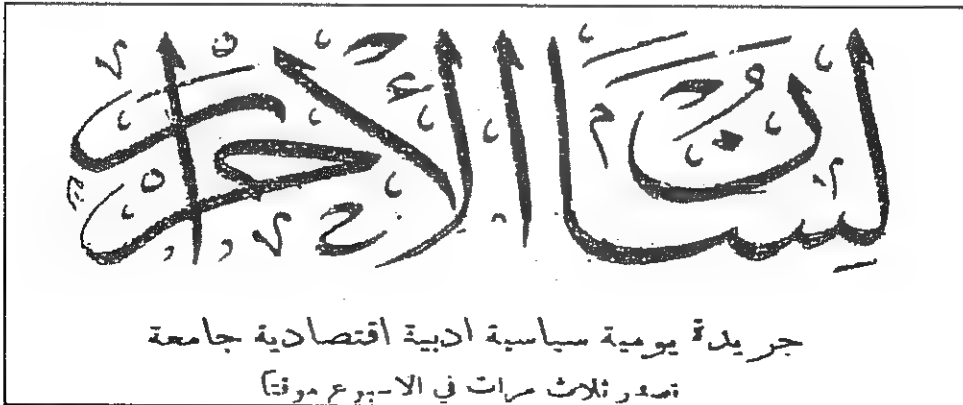 لسان الاحرار
جريدة يومية سياسية ادبية اقتصادية جامعة
تصدر ثلاث مرات في الاسبوع موقتا